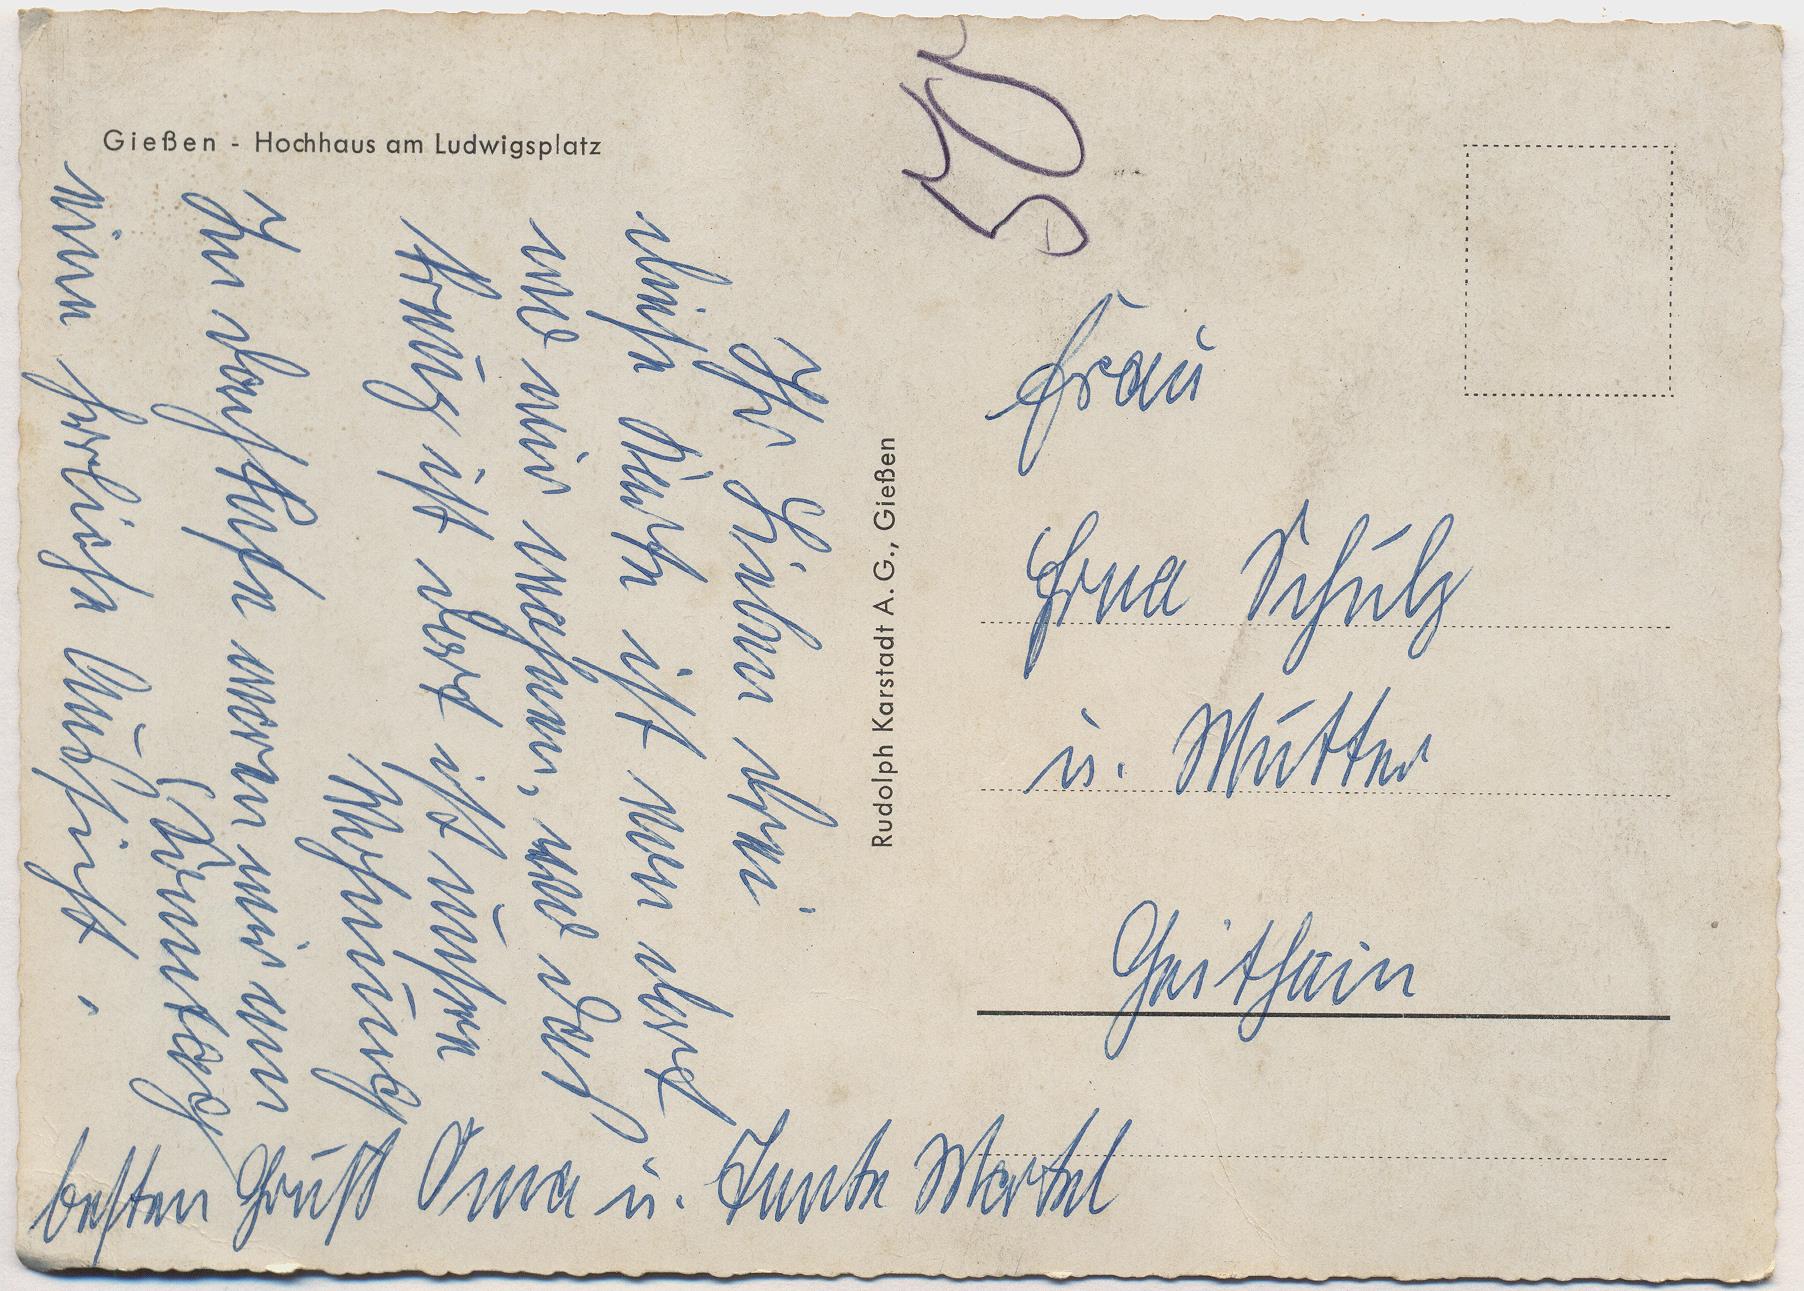 Gießen - Hochhaus am Ludwigsplatz
50
Ihr Lieben drei
diese Karte ist von dort
wo wir wohnen, wo das
Kreuz ist dort ist unsere
Wohnung
Im Dachkaffe waren wir
(Sonntag
eine herliche Aussicht.
besten Gruß Oma u. Tante Martel
Rudolph Karstadt A. G., Gießen
Frau
Erna Schulz
u. Mutter
Geithain